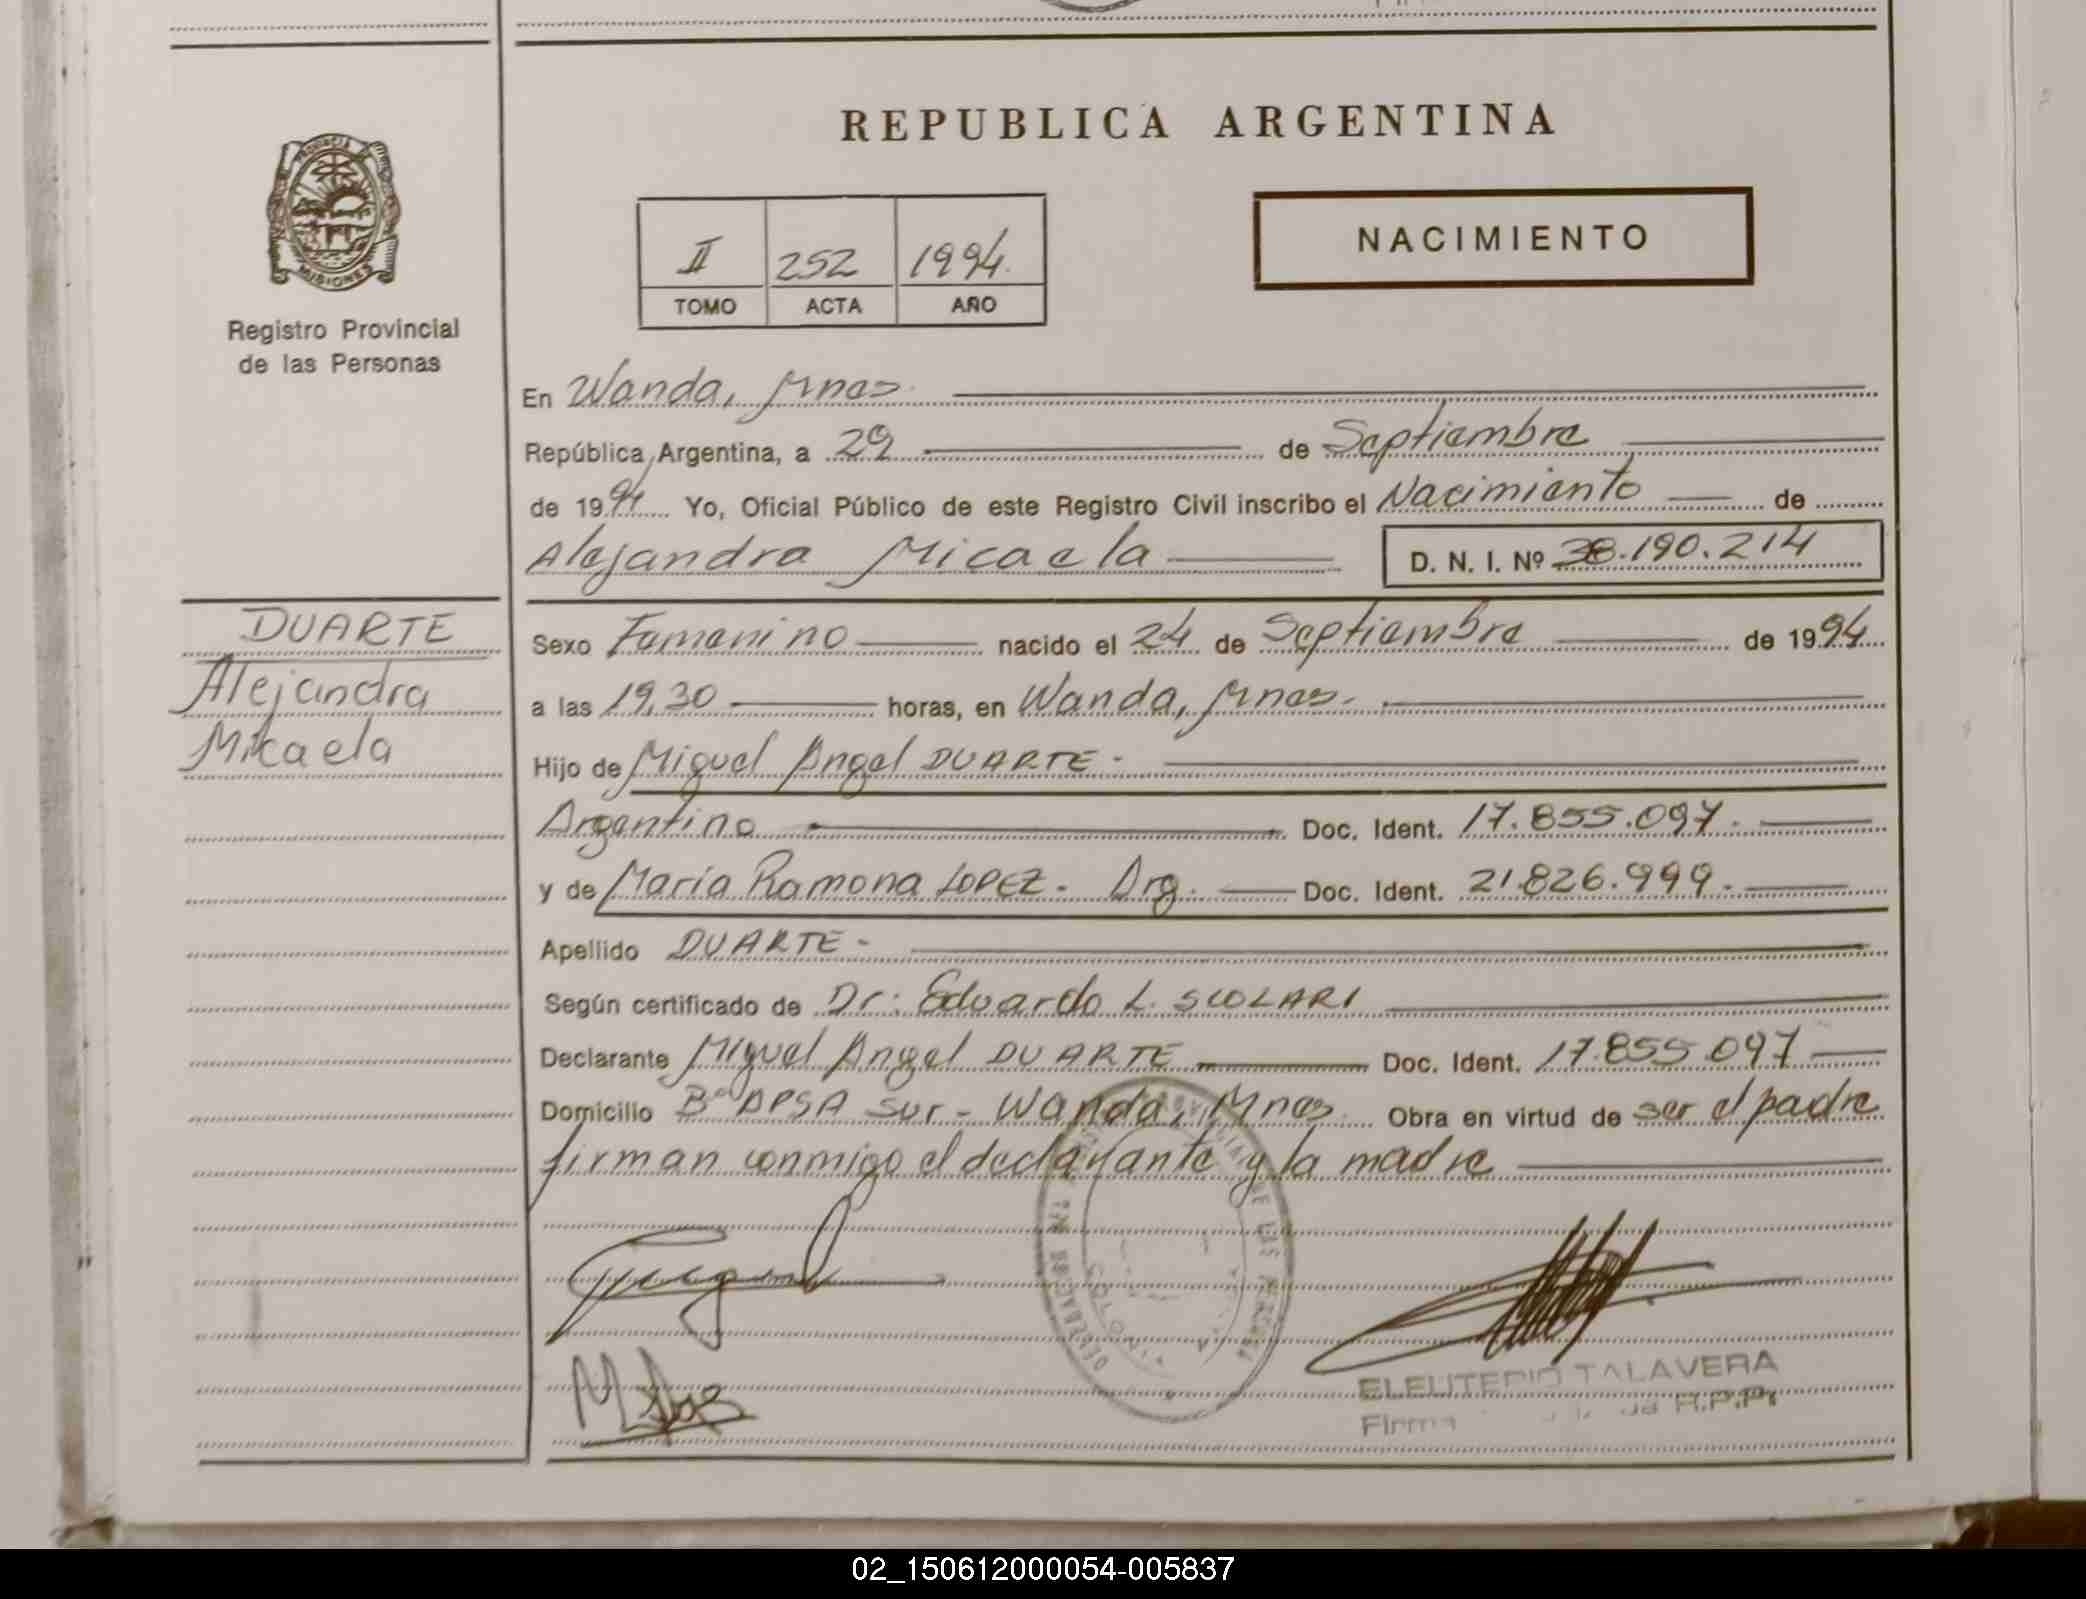 PROVINCIA
MISIONES
Registro Provincial
de las Personas
REPUBLICA ARGENTINA
II 252 1994.
TOMO ACTA AÑO
NACIMIENTO
En Wanda, Mnes.
República Argentina, a 29 de Septiembre
de 1994 Yo, Oficial Público de este Registro Civil inscribo el Nacimiento de
Alejandra Micaela D. N. I. Nº 38.190.214
DUARTE
Alejandra
Micaela
Sexo Femenino nacido el 24 de Septiembre de 1994
a las 19,30 horas, en Wanda, Mnes.
Hijo de Miguel Angel DUARTE -
Argentino Doc. Ident. 17.855.097.
y de María Ramona LOPEZ - Arg. Doc. Ident. 21.826.999.
Apellido DUARTE -
Según certificado de Dr: Eduardo L. SCOLARI
Declarante Miguel Angel DUARTE Doc. Ident. 17.855.097
Domicilio Bº APSA Sur - Wanda, Mnes. Obra en virtud de ser el padre
firman conmigo el declarante y la madre
ELEUTERIO TALAVERA
Firma R.P.P.
02_150612000054-005837